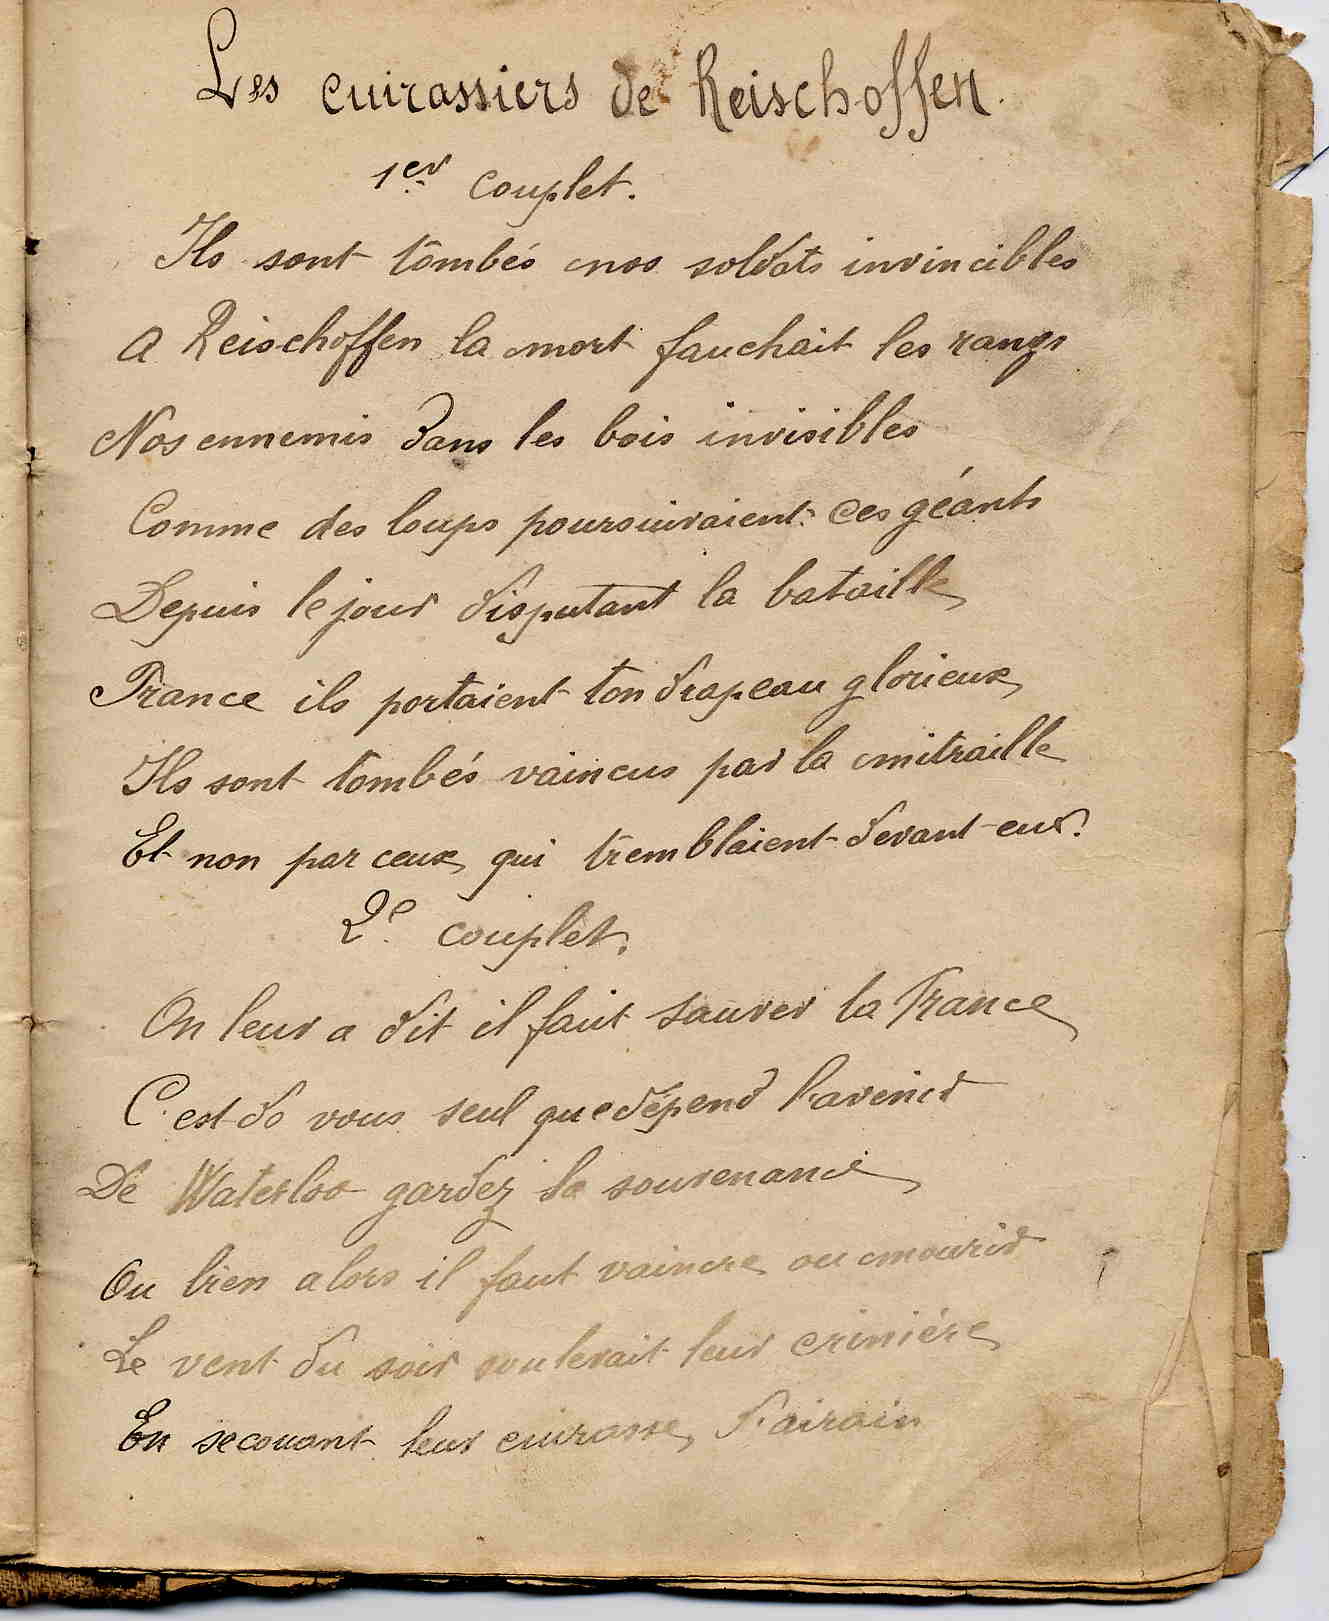 Les cuirassiers de Reischoffen.
1er couplet.
Ils sont tombés nos soldats invincibles
A Reischoffen la mort fauchait les rangs
Nos ennemis dans les bois invisibles
Comme des loups poursuivaient ces géants
Depuis le jour disputant la bataille
France ils portaient ton drapeau glorieux
Ils sont tombés vaincus par la mitraille
Et non par ceux qui tremblaient devant eux.
2e couplet.
On leur a dit il faut sauver la France
C'est de vous seul que dépend l'avenir
De Waterloo gardez la souvenance
Ou bien alors il faut vaincre ou mourir
Le vent du soir soulevait leur crinière
En secouant leur cuirasse d'airain